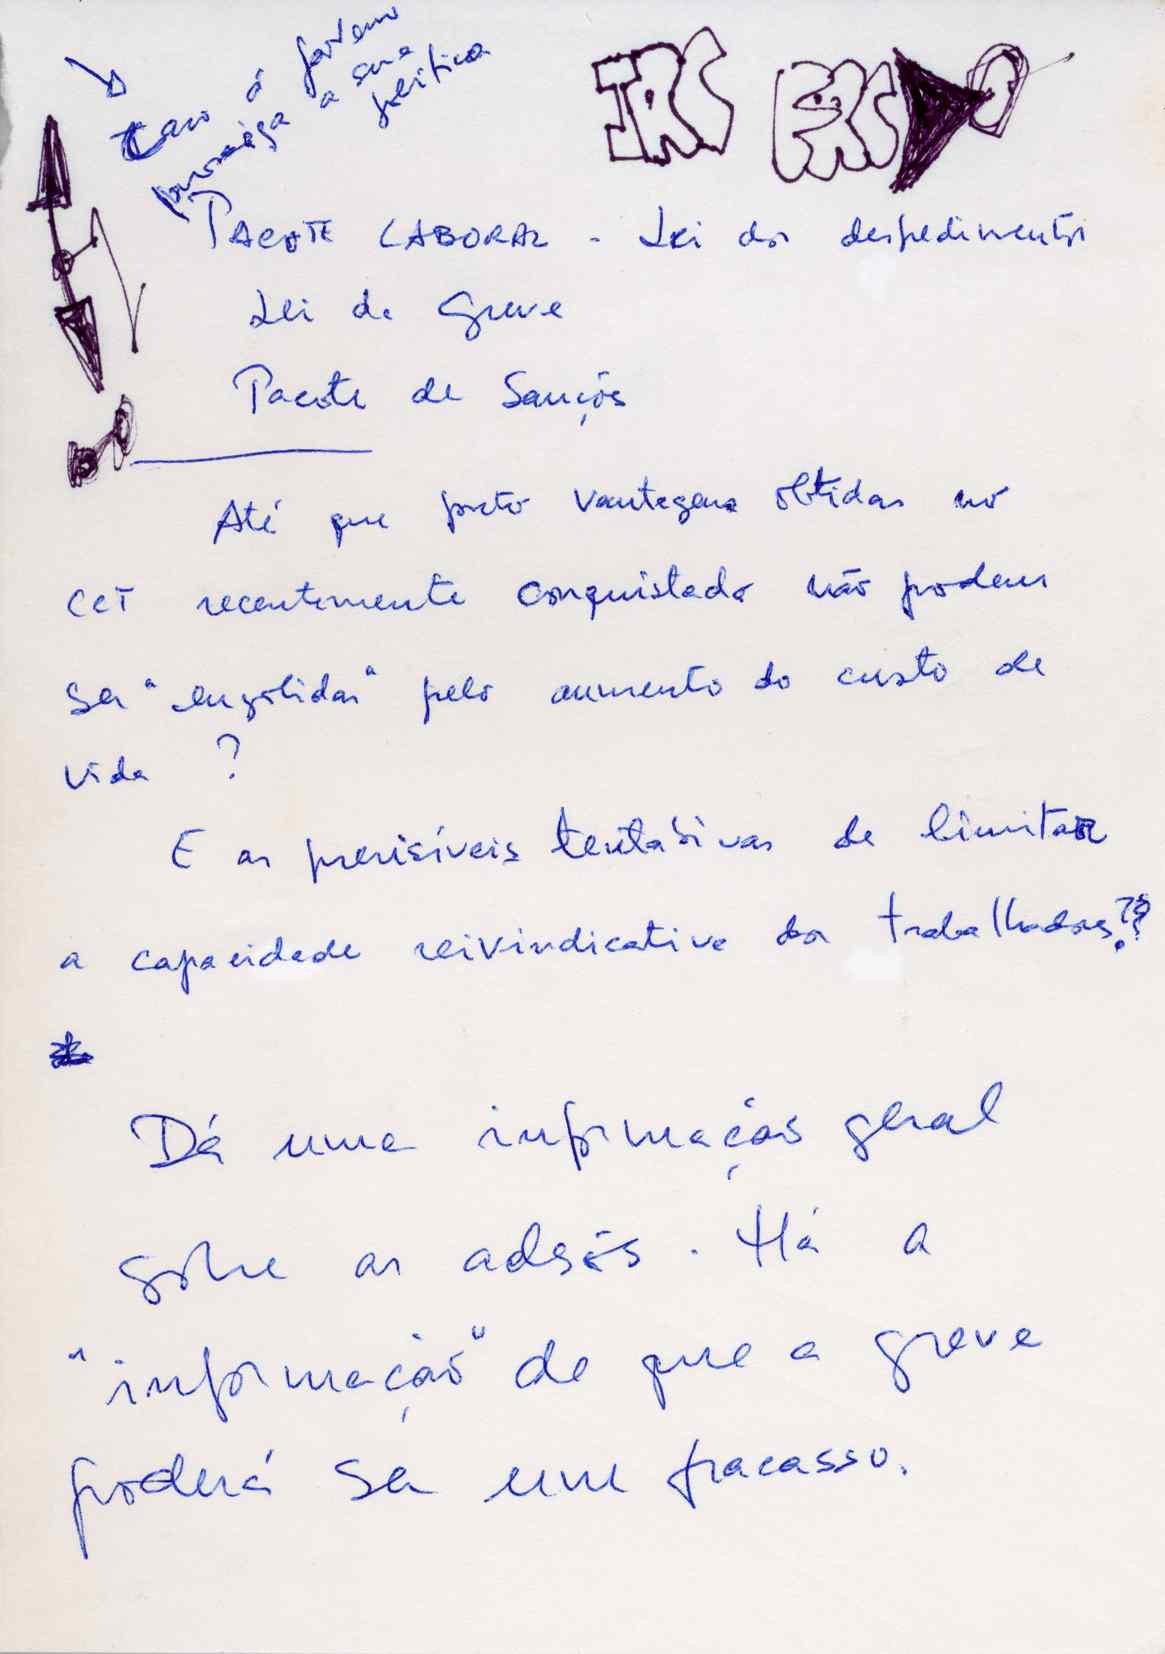 Caso o governo
prossiga a sua
política
IRS IRS
PACOTE LABORAL - Lei dos despedimentos
Lei da Greve
Pacote de Sanções
Até que ponto vantagens obtidas no
CCT recentemente conquistado não podem
ser "engolidas" pelo aumento do custo de
vida ?
E as previsíveis tentativas de limitar
a capacidade reivindicativa dos trabalhadores??
Dá uma informação geral
sobre as adesões. Há a
"informação" de que a greve
poderá ser um fracasso.